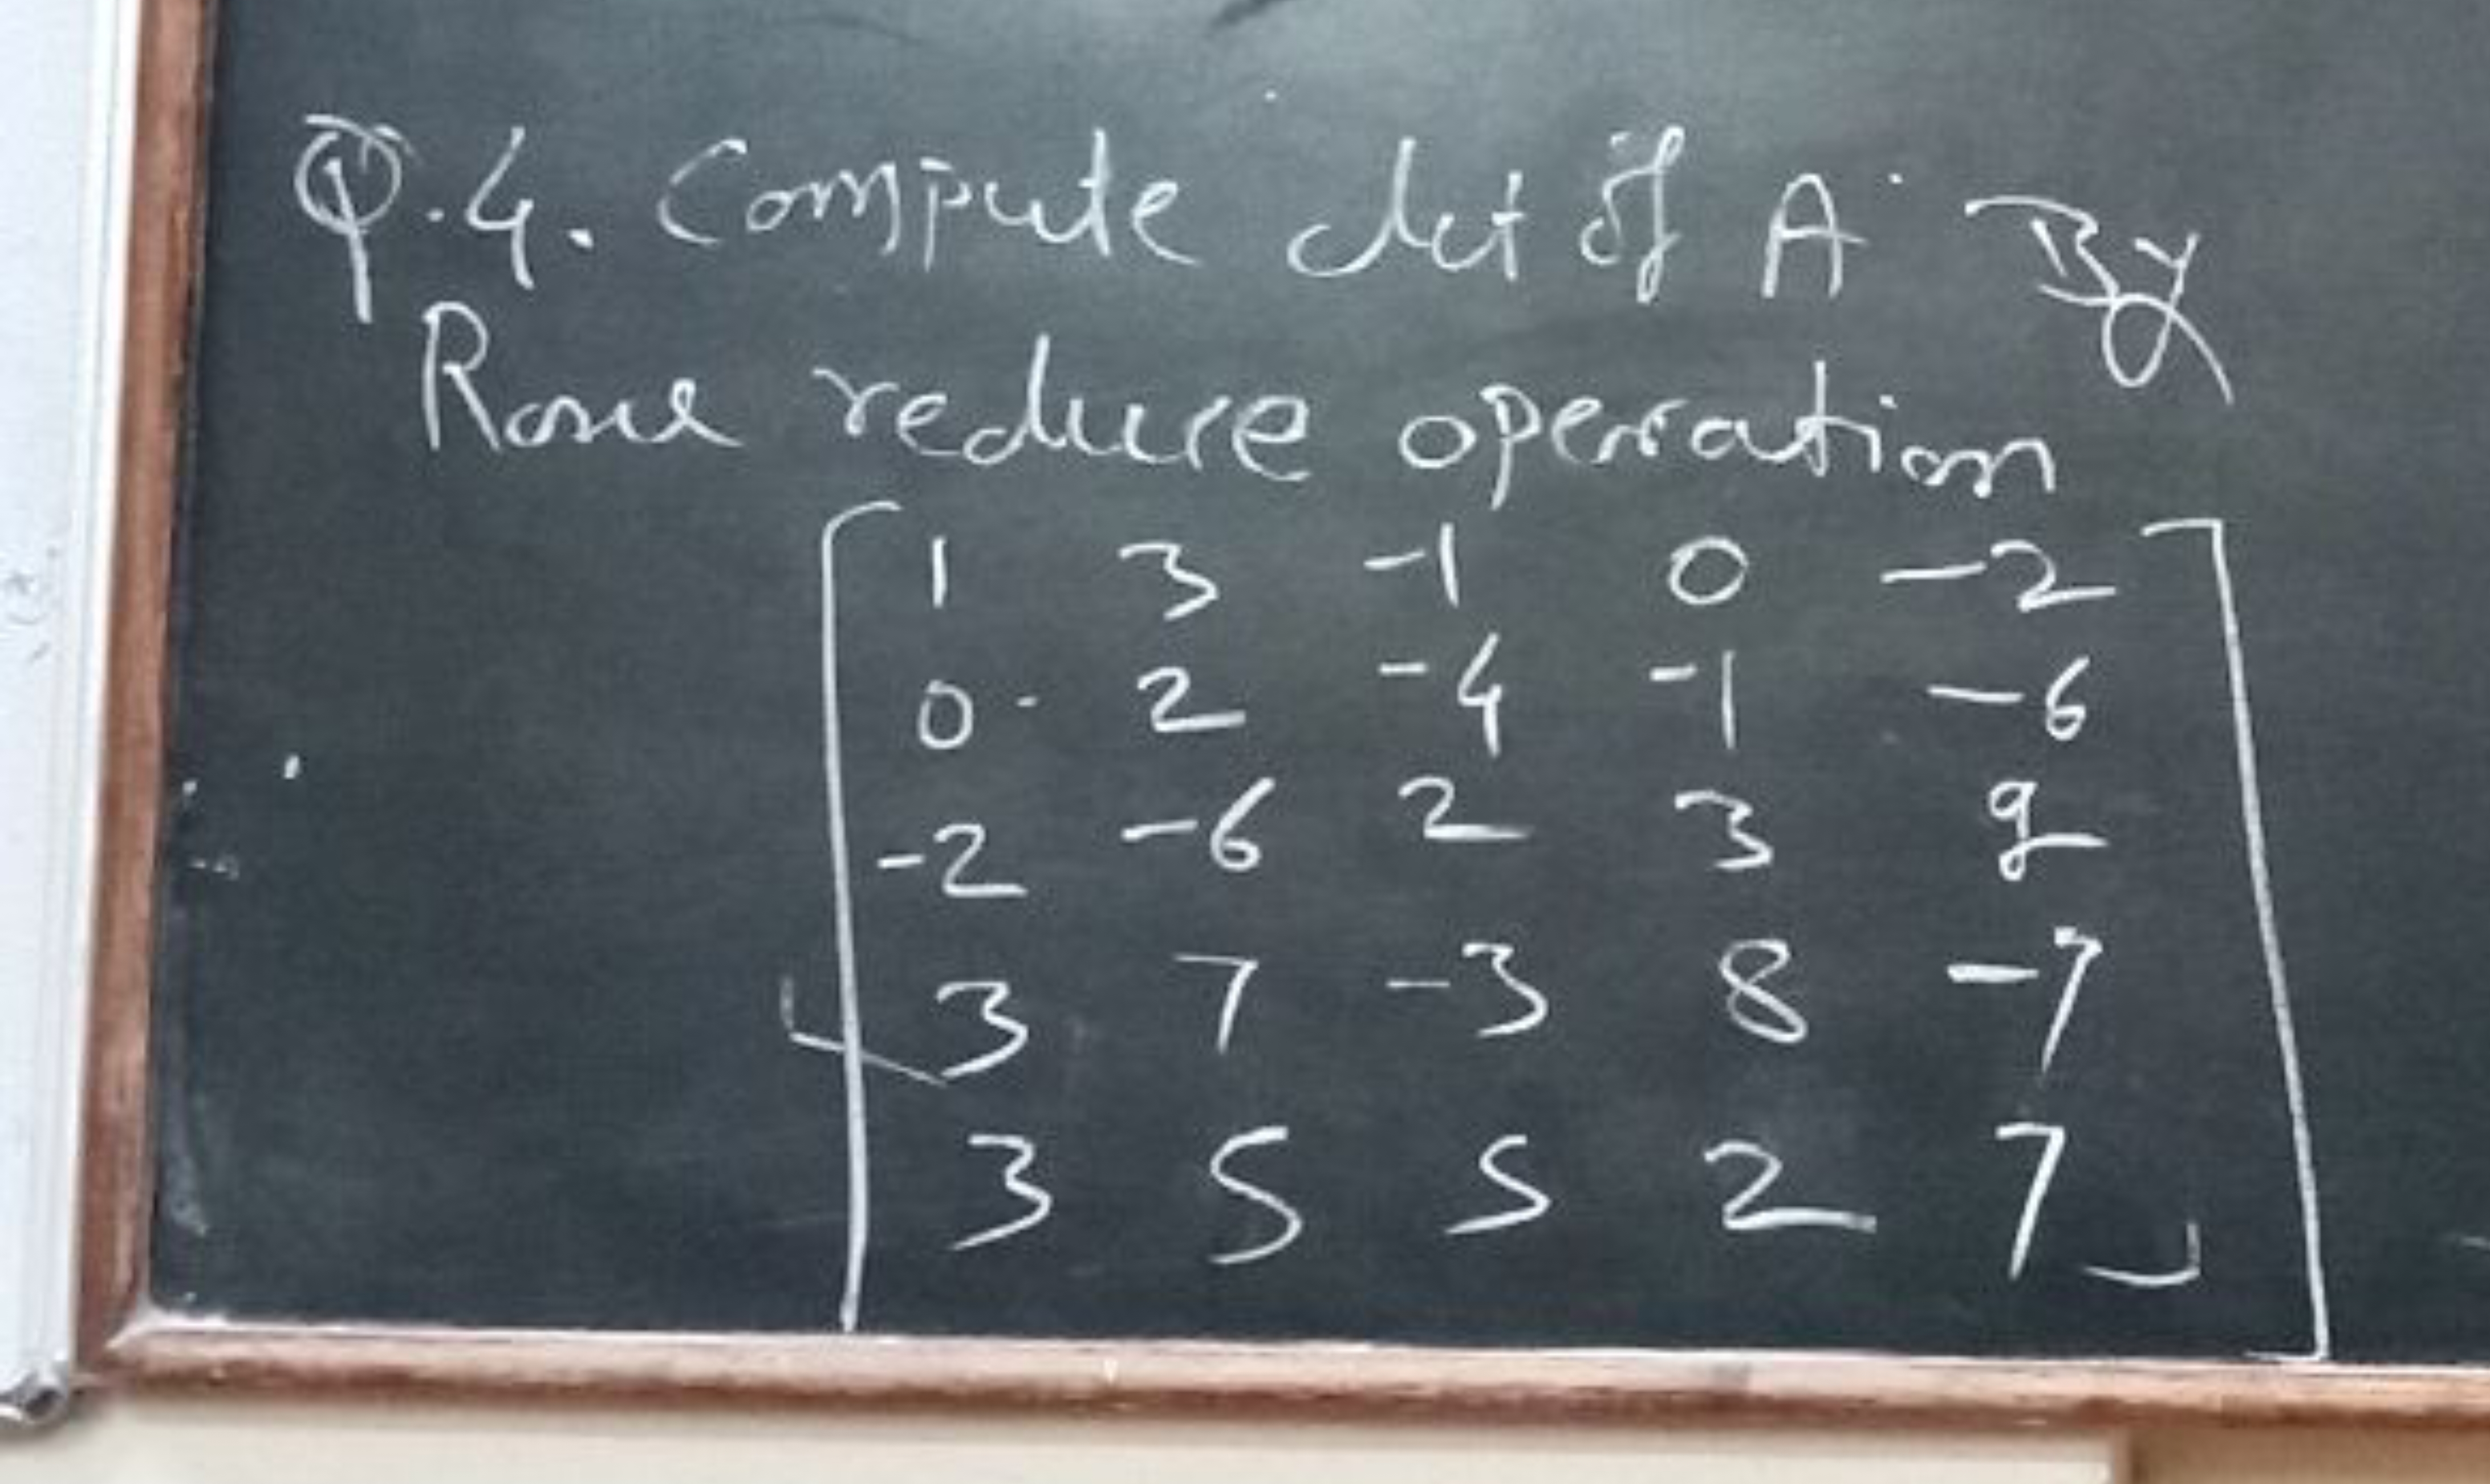 Q.4. Compute det of A. By
Rowe reduce operation
1 3 -1 0 -2
0 2 -4 -1 -6
-2 -6 2 3 9
3 7 -3 8 -7
3 5 5 2 7